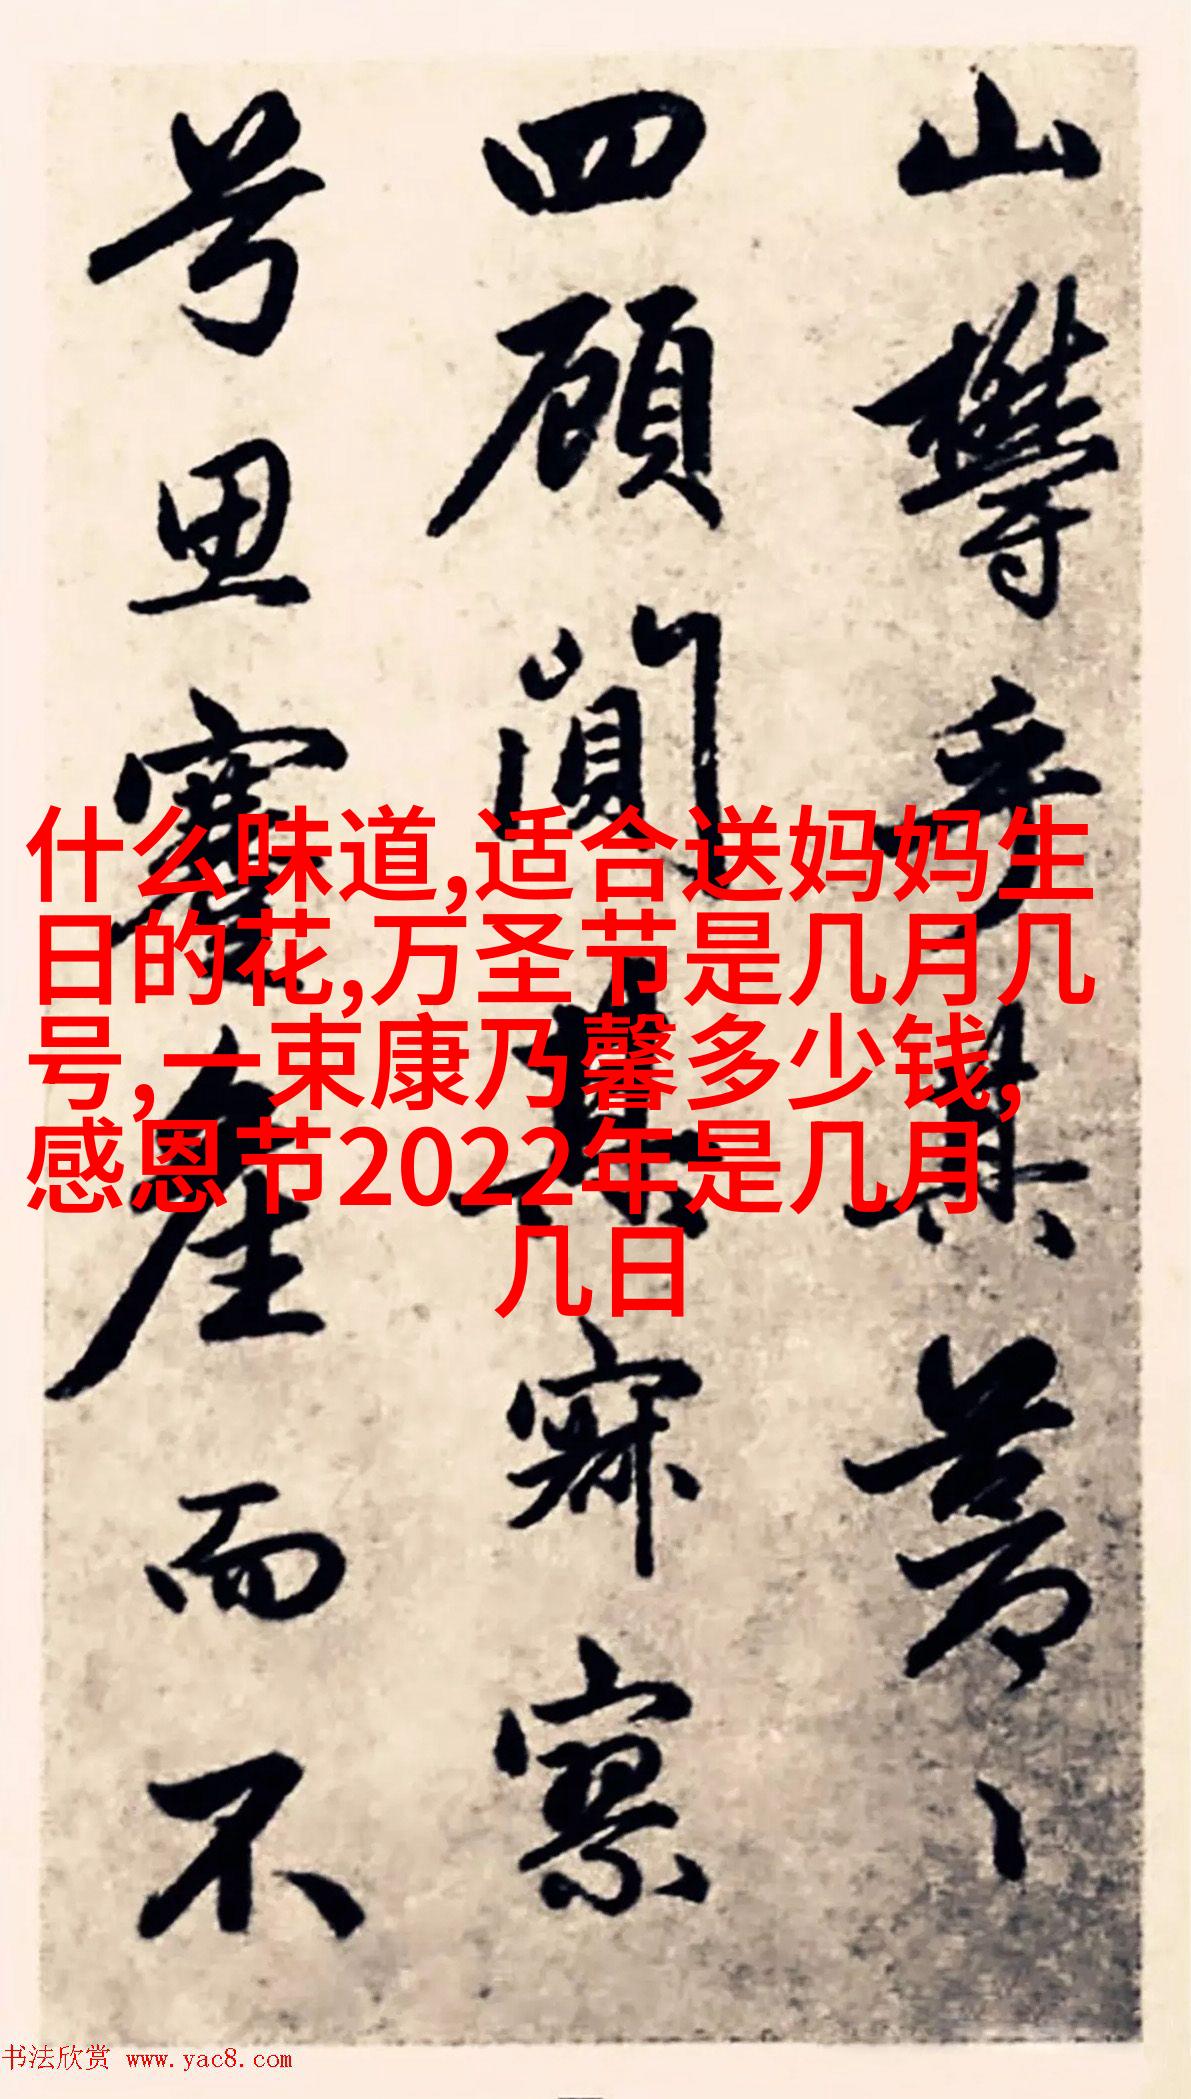 山樊季其蓊、
四顾阒其寂寥
号思蹇产而不
什么味道,适合送妈妈生
日的花,万圣节是几月几
号,一束康乃馨多少钱,
感恩节2022年是几月
几日
书法欣赏 www.yac8.com